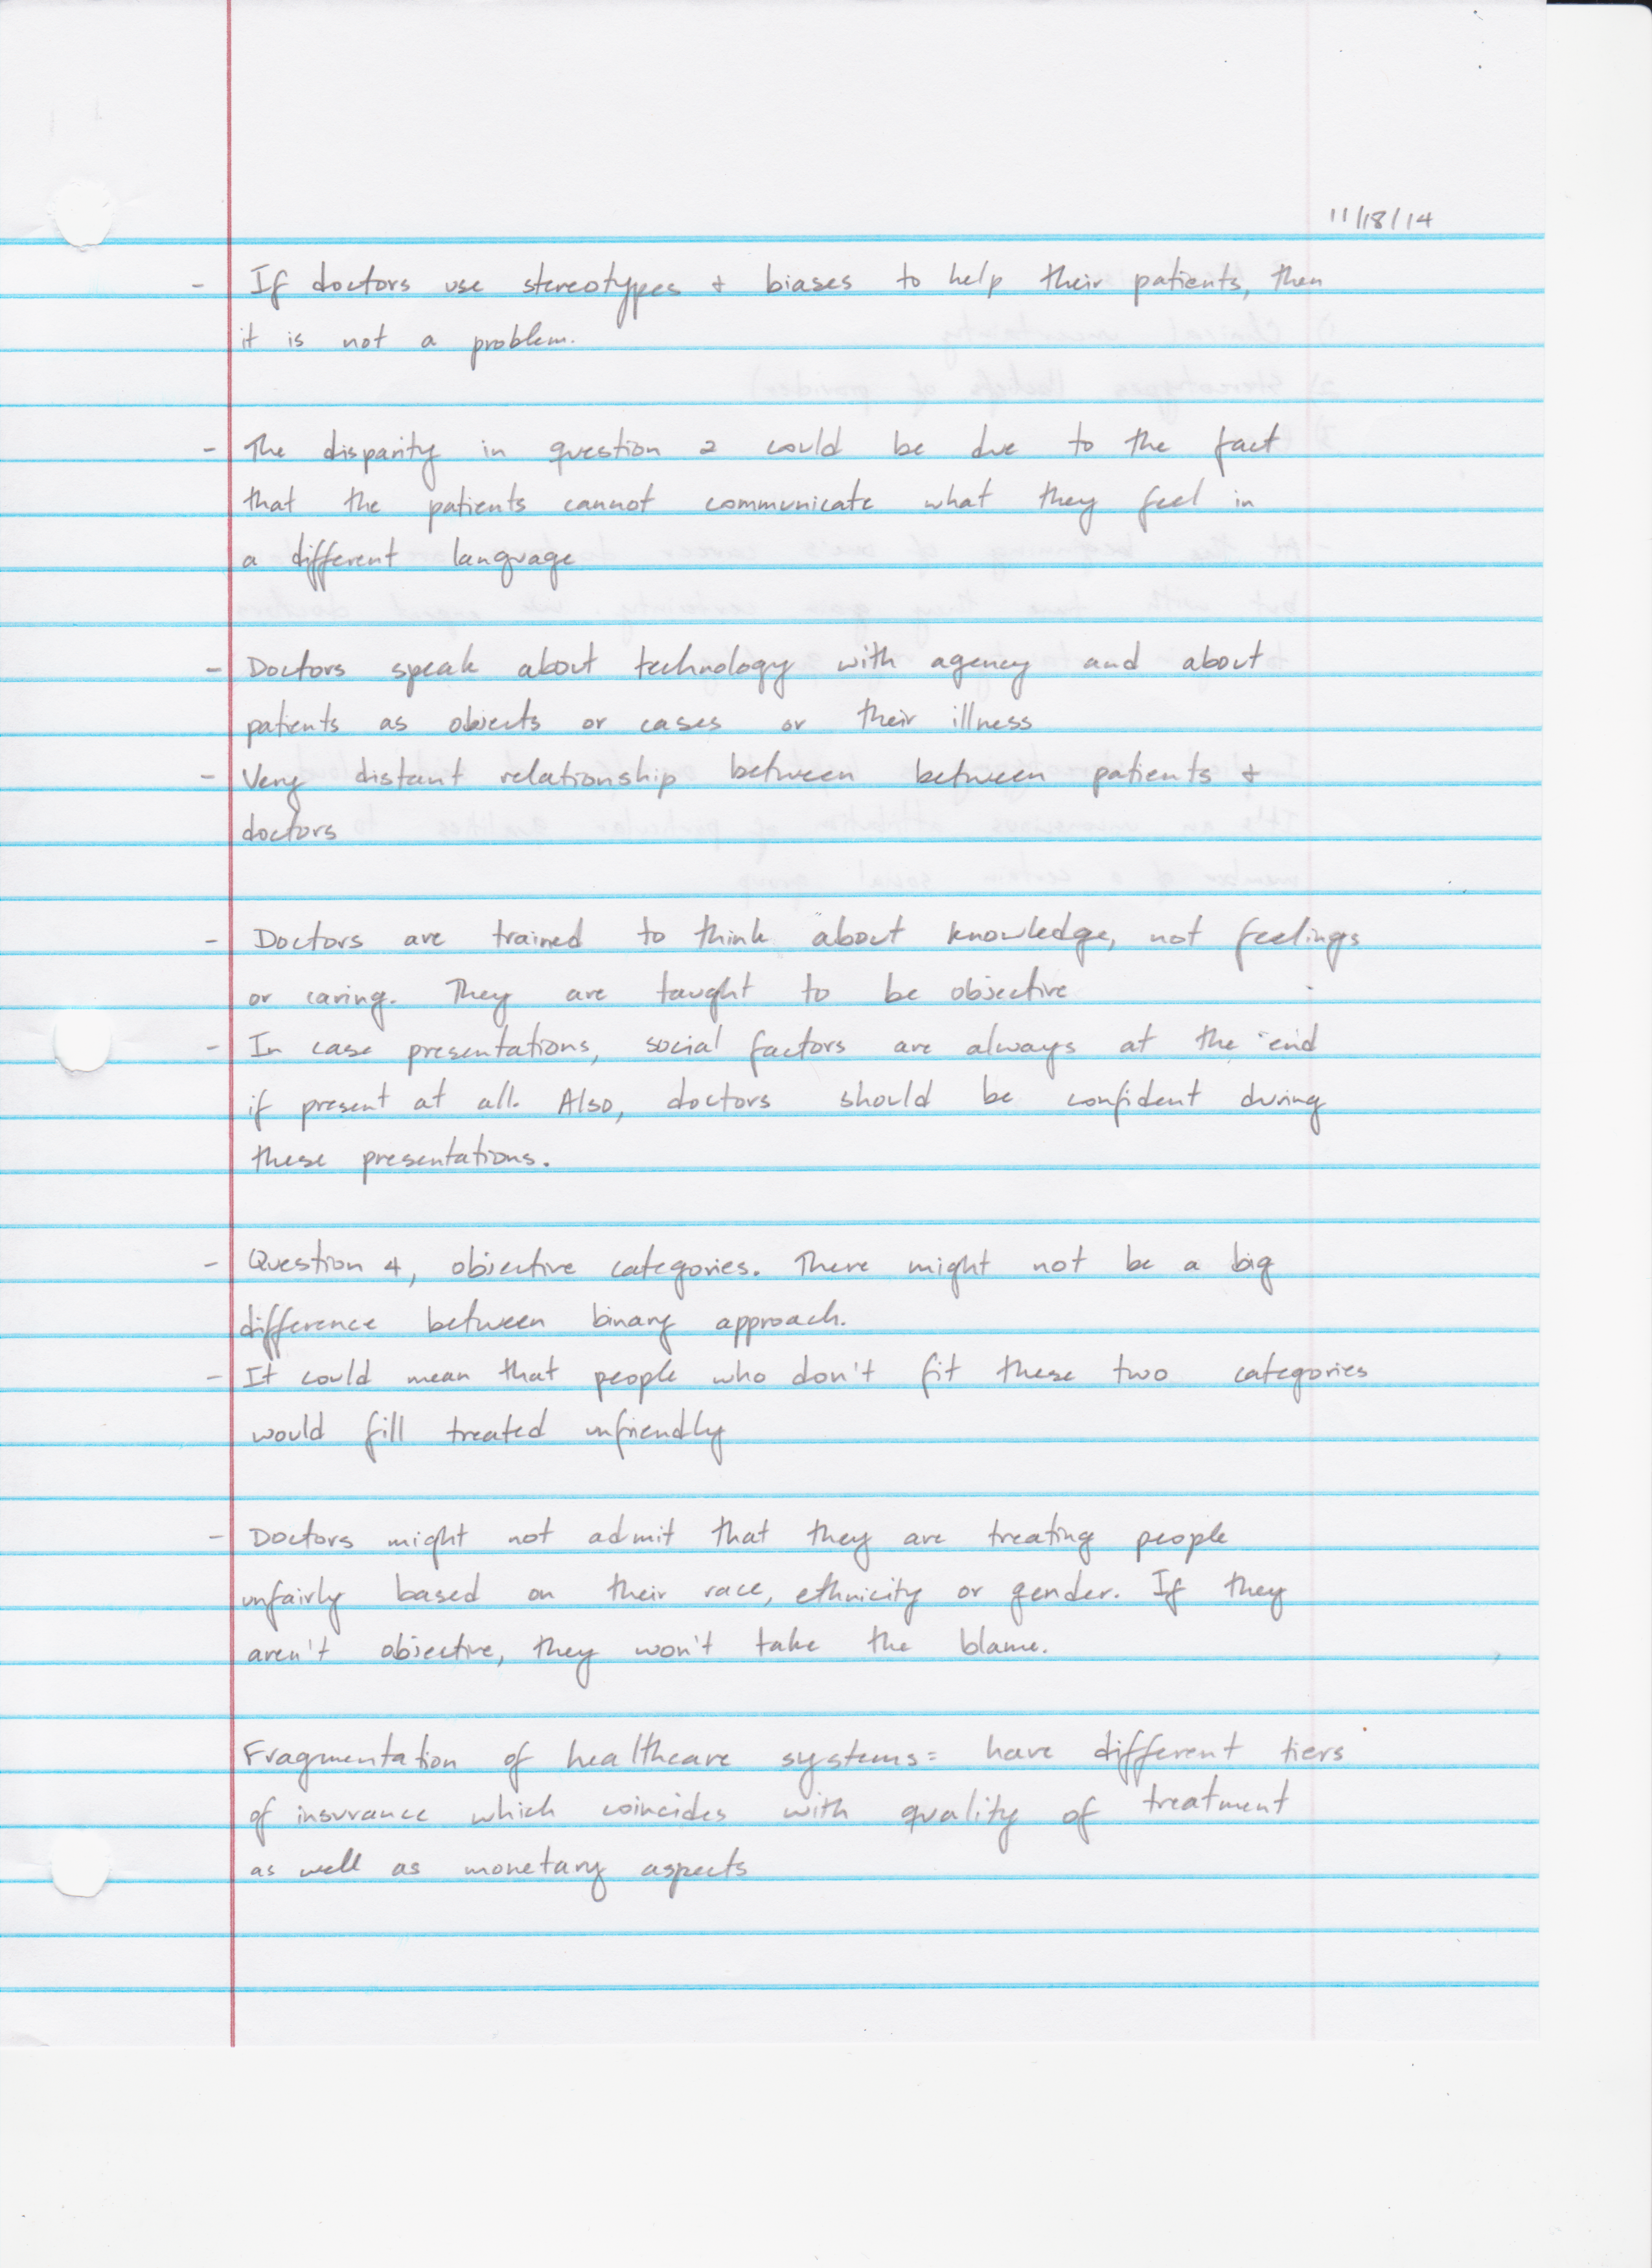 11/18/14
- If doctors use stereotypes & biases to help their patients, then
it is not a problem.
- The disparity in question 2 could be due to the fact
that the patients cannot communicate what they feel in
a different language
- Doctors speak about technology with agency and about
patients as objects or cases or their illness
- Very distant relationship between between patients &
doctors
- Doctors are trained to think about knowledge, not feelings
or caring. They are taught to be objective
- In case presentations, social factors are always at the end
if present at all. Also, doctors should be confident during
these presentations.
- Question 4, objective categories. There might not be a big
difference between binary approach.
- It could mean that people who don't fit these two categories
would fill treated unfriendly
- Doctors might not admit that they are treating people
unfairly based on their race, ethnicity or gender. If they
aren't objective, they won't take the blame.
Fragmentation of healthcare systems = have different tiers
of insurance which coincides with quality of treatment
as well as monetary aspects